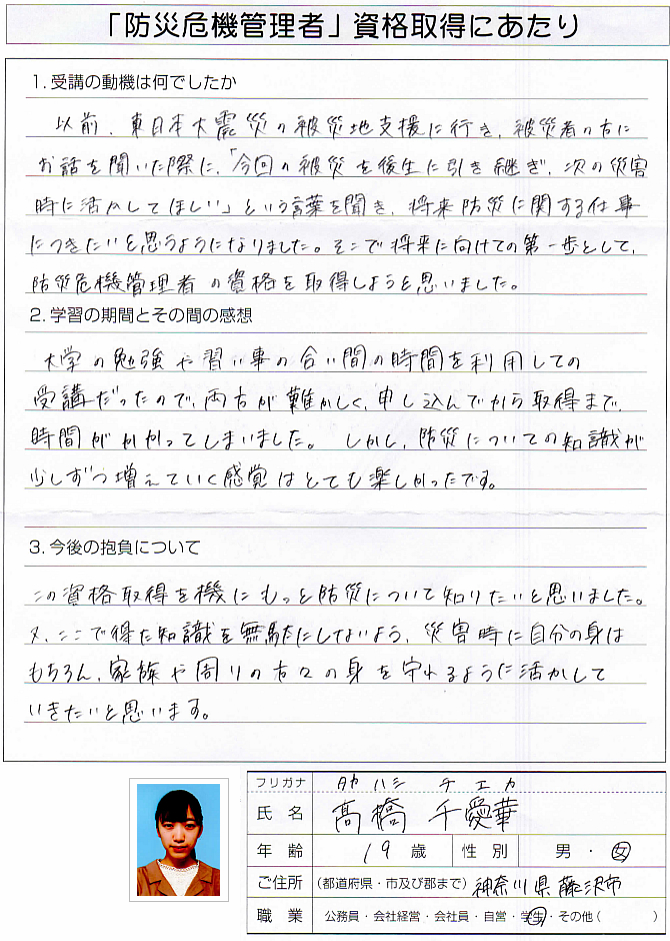 「防災危機管理者」資格取得にあたり
1. 受講の動機は何でしたか
以前、東日本大震災の被災地支援に行き、被災者の方に
お話を聞いた際に、「今回の被災を後生に引き継ぎ、次の災害
時に活かしてほしい」という言葉を聞き、将来防災に関する仕事
につきたいと思うようになりました。そこで将来に向けての第一歩として、
防災危機管理者の資格を取得しようと思いました。
2. 学習の期間とその間の感想
大学の勉強や習い事の合い間の時間を利用しての
受講だったので、両方が難かしく、申し込んでから取得まで、
時間がかかってしまいました。しかし、防災についての知識が
少しずつ増えていく感覚はとても楽しかったです。
3. 今後の抱負について
この資格取得を機にもっと防災について知りたいと思いました。
又、ここで得た知識を無駄にしないよう、災害時に自分の身は
もちろん、家族や周りの方々の身を守れるように活かして
いきたいと思います。
フリガナ タカハシ チエカ
氏名 髙橋 千愛華
年齢 19歳 性別 男・女
ご住所 (都道府県・市及び郡まで) 神奈川県藤沢市
職業 公務員・会社経営・会社員・自営・学生・その他( )